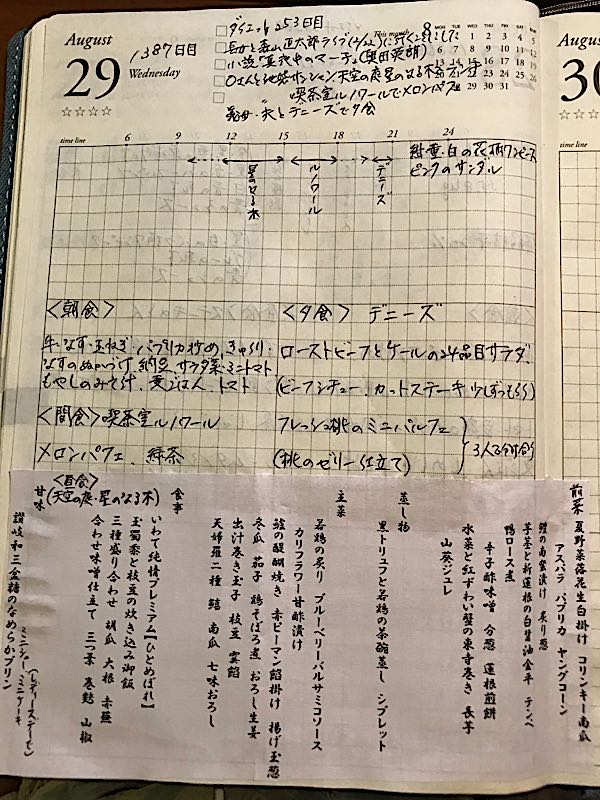 August
29
Wednesday
☆☆☆☆
1387日目
ダイエット253日目
This month
8
MON TUE WED THU FRI SAT SUN
1 2 3 4 5
6 7 8 9 10 11 12
13 14 15 16 17 18 19
20 21 22 23 24 25 26
27 28 29 30 31
長女と森山直太朗ライブ(12/22)に行くことにした
小説「真夜中のマーチ」(奥田英朗)
Oさんと池袋サンシャイン、天空の庭星のなる木でランチ
〃 喫茶室ルノワールでメロンパフェ
義母・夫とデニーズで夕食
time line 6 9 12 15 18 21 24
星のなる木
ルノワール
デニーズ
紺・白の花柄ワンピース
ピンクのサンダル
<朝食>
牛・なす・玉ねぎ・パプリカ炒め、きゅうり・
なすのぬかづけ、納豆、サラダ菜・ミニトマト
もやしのみそ汁、麦ごはん、トマト
<間食>喫茶室ルノワール
メロンパフェ、緑茶
<夕食> デニーズ
ローストビーフとケールの24品目サラダ、
(ビーフシチュー、カットステーキ少しずつもらう)
フレッシュ桃のミニパルフェ
(桃のゼリー仕立て)
3人で分け合う
<昼食>
(天空の庭・星のなる木)
前菜 夏野菜落花生白掛け コリンキー南瓜
アスパラ パプリカ ヤングコーン
鱧の南蛮漬け 炙り葱
芋茎と新蓮根の白醤油金平 テンペ
鴨ロース煮
辛子酢味噌 分葱 蓮根煎餅
水菜と紅ずわい蟹の東寺巻き 長芋
山葵ジュレ
蒸し物
黒トリュフと若鶏の茶碗蒸し シブレット
主菜
若鶏の炙り ブルーベリーバルサミコソース
カリフラワー甘酢漬け
鱧の醍醐焼き 赤ピーマン餡掛け 揚げ玉葱
冬瓜 茄子 鶏そぼろ煮 おろし生姜
出汁巻き玉子 枝豆 霙餡
天婦羅二種 鱚 南瓜 七味おろし
食事
いわて純情プレミアム【ひとめぼれ】
玉蜀黍と枝豆の炊き込み御飯
三種盛り合わせ 胡瓜 大根 赤蕪
合わせ味噌仕立て 三つ葉 巻麩 山椒
甘味
讃岐和三盆糖のなめらかプリン
ミニゼリー ミニケーキ
(レディースデイで)
August
30
☆☆☆☆
time line